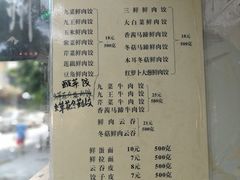 九菜鲜肉饺
九王鲜肉饺
玉米鲜肉饺
紫菜鲜肉饺
芹菜鲜肉饺
莲藕鲜肉饺
豆角鲜肉饺
18元
500克
三鲜鲜肉饺
大白菜鲜肉饺
香菇马蹄鲜肉饺
冬菇鲜肉饺
木耳冬菇饺
红萝卜大葱鲜肉饺
18元
500克
酸菜饺
九菜牛肉饺
九王牛肉饺
芹菜牛肉饺
香茜马蹄牛肉饺
25元
500克
鲜肉云吞
冬菇鲜肉云吞
25元
500克
鲜蛋面 10元 500克
鲜拉面 7元 500克
云吞皮 8元 500克
饺子皮 7元 500克